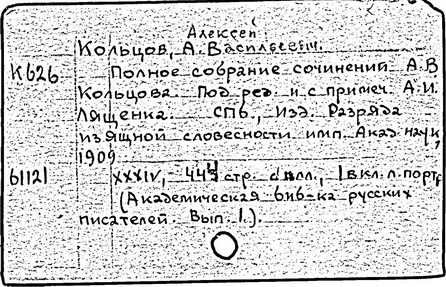 Алексей
Кольцов, А. Васильевич.
К626 Полное собрание сочинений А.В
Кольцова. Под ред. и с примеч. А.И.
Лященка. СПб., Изд. Разряда
изящной словесности имп. Акад. наук,
1909
61121 XXXIV, 444 стр. с илл., 1 вкл. л. портр
(Академическая биб-ка русских
писателей. Вып. 1.)